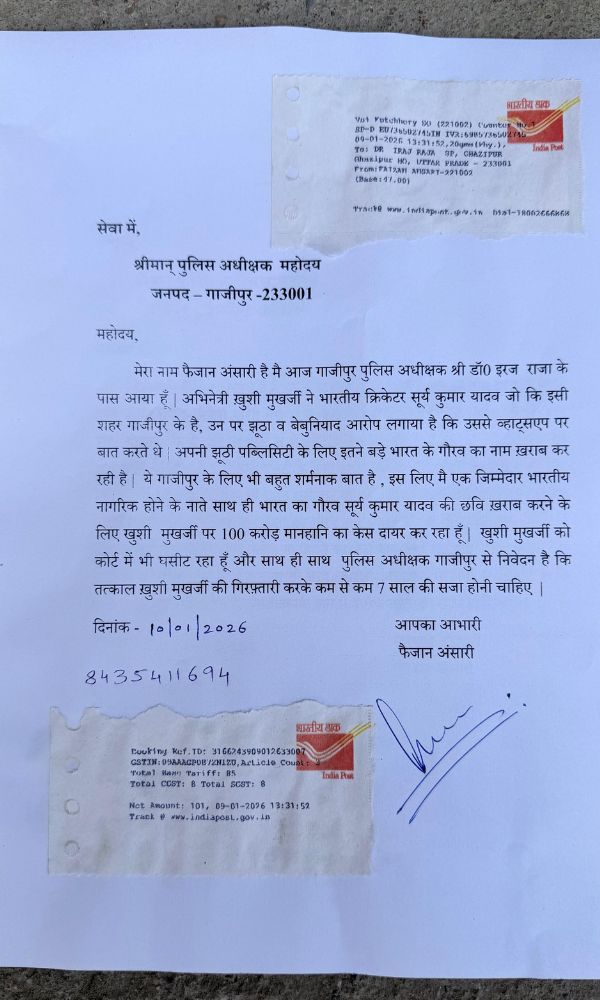 भारतीय डाक
India Post
SP-D EU736502745IN IVR:6985736502745
09-01-2026 13:31:52,20gms(Phy.),
To: DR IRAJ RAJA SP, GHAZIPUR
Ghazipur HO, UTTAR PRADE - 233001
From:FAIZAN ANSARI-221002
(Base:47.00)
Track@ www.indiapost.gov.in Dial-18002666868
सेवा में,
श्रीमान् पुलिस अधीक्षक महोदय
जनपद – गाजीपुर -233001
महोदय,
मेरा नाम फैजान अंसारी है मै आज गाजीपुर पुलिस अधीक्षक श्री डॉ0 इरज राजा के
पास आया हूँ | अभिनेत्री ख़ुशी मुखर्जी ने भारतीय क्रिकेटर सूर्य कुमार यादव जो कि इसी
शहर गाजीपुर के है, उन पर झूठा व बेबुनियाद आरोप लगाया है कि उससे व्हाट्सएप पर
बात करते थे | अपनी झूठी पब्लिसिटी के लिए इतने बड़े भारत के गौरव का नाम ख़राब कर
रही है | ये गाजीपुर के लिए भी बहुत शर्मनाक बात है , इस लिए मै एक जिम्मेदार भारतीय
नागरिक होने के नाते साथ ही भारत का गौरव सूर्य कुमार यादव की छवि ख़राब करने के
लिए खुशी मुखर्जी पर 100 करोड़ मानहानि का केस दायर कर रहा हूँ | खुशी मुखर्जी को
कोर्ट में भी घसीट रहा हूँ और साथ ही साथ पुलिस अधीक्षक गाजीपुर से निवेदन है कि
तत्काल ख़ुशी मुखर्जी की गिरफ़्तारी करके कम से कम 7 साल की सजा होनी चाहिए |
दिनांक - 10/01/2026
आपका आभारी
फैजान अंसारी
8435411694
भारतीय डाक
India Post
Booking Ref.ID:
Article Count:
Total Base Tariff: 85
Total CGST: 8 Total SGST: 8
Net Amount: 101, 09-01-2026 13:31:52
Track @ www.indiapost.gov.in